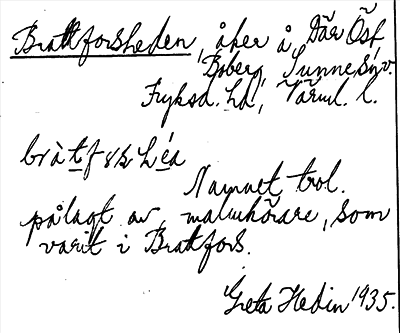 Brattforsheden, åker å Där Öst,
Boberg, Sunne sn.
Fryksd. hd, Värml. l.
Namnet trol.
pålagt av malmkörare, som
varit i Brattfors.
Greta Hedin 1935.